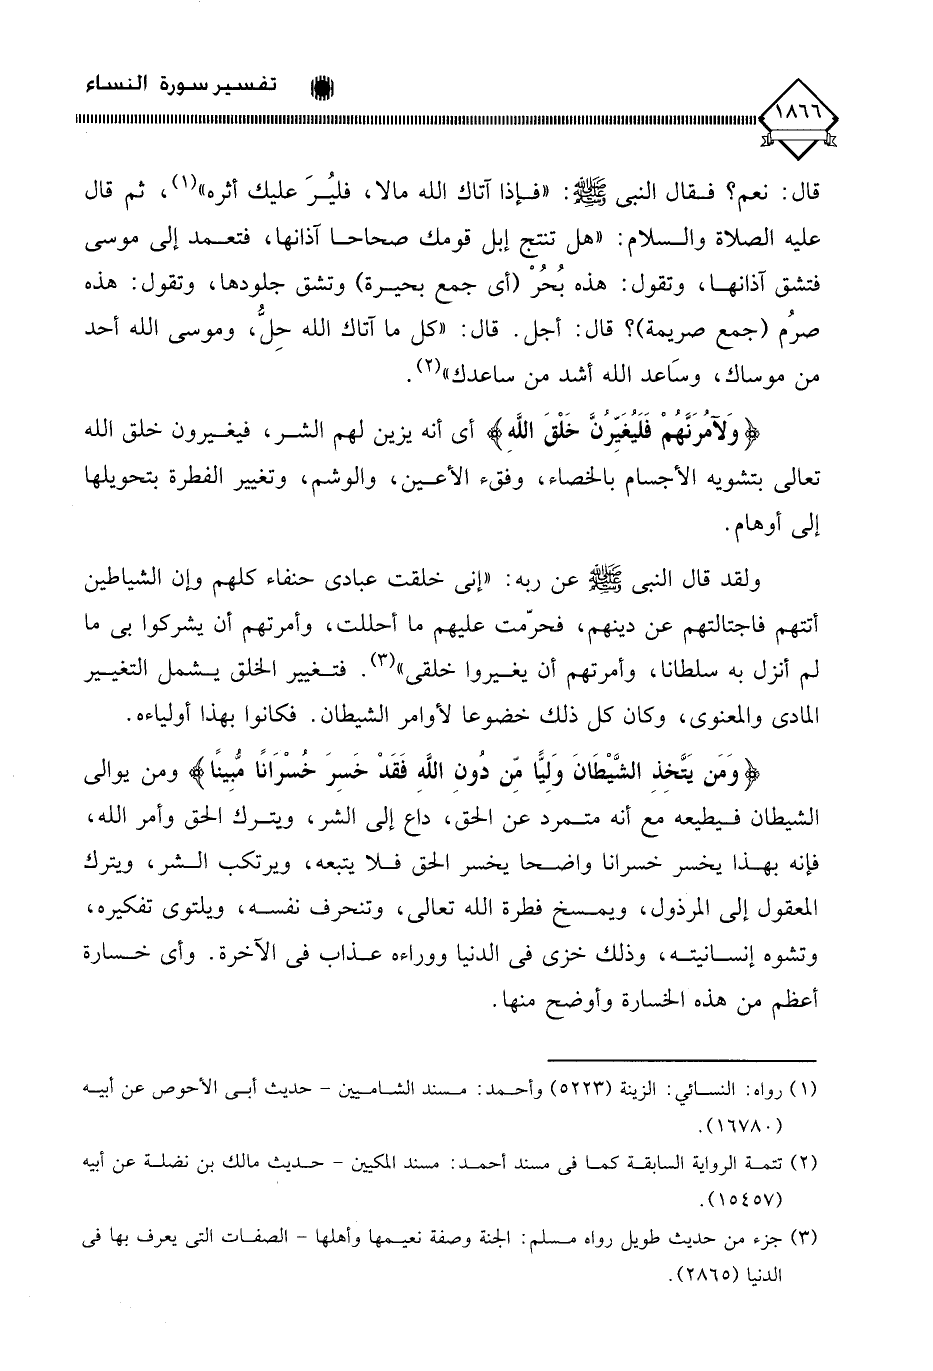 تفسير سورة النساء
١٨٦٦
قال: نعم؟ فقال النبى ﷺ: «فإذا آتاك الله مالا، فليُرَ عليك أثره»(١)، ثم قال
عليه الصلاة والسلام: «هل تنتج إبل قومك صحاحا آذانها، فتعمد إلى موسى
فتشق آذانها، وتقول: هذه بُحُرْ (أى جمع بحيرة) وتشق جلودها، وتقول: هذه
صرُم (جمع صريمة)؟ قال: أجل. قال: «كل ما آتاك الله حِلُّ، وموسى الله أحد
من موساك، وسَاعد الله أشد من ساعدك»(٢).
﴿وَلَآمُرَنَّهُمْ فَلَيُغَيِّرُنَّ خَلْقَ اللَّهِ﴾ أى أنه يزين لهم الشر، فيغيرون خلق الله
تعالى بتشويه الأجسام بالخصاء، وفقء الأعين، والوشم، وتغيير الفطرة بتحويلها
إلى أوهام.
ولقد قال النبى ﷺ عن ربه: «إنى خلقت عبادى حنفاء كلهم وإن الشياطين
أتتهم فاجتالتهم عن دينهم، فحرّمت عليهم ما أحللت، وأمرتهم أن يشركوا بى ما
لم أنزل به سلطانا، وأمرتهم أن يغيروا خلقى»(٣). فتغيير الخلق يشمل التغيير
المادى والمعنوى، وكان كل ذلك خضوعا لأوامر الشيطان. فكانوا بهذا أولياءه.
﴿وَمَن يَتَّخِذِ الشَّيْطَانَ وَلِيًّا مِّن دُونِ اللَّهِ فَقَدْ خَسِرَ خُسْرَانًا مُّبِينًا﴾ ومن يوالى
الشيطان فيطيعه مع أنه متمرد عن الحق، داع إلى الشر، ويترك الحق وأمر الله،
فإنه بهذا يخسر خسرانا واضحا يخسر الحق فلا يتبعه، ويرتكب الشر، ويترك
المعقول إلى المرذول، ويمسخ فطرة الله تعالى، وتنحرف نفسه، ويلتوى تفكيره،
وتشوه إنسانيته، وذلك خزى فى الدنيا ووراءه عذاب فى الآخرة. وأى خسارة
أعظم من هذه الخسارة وأوضح منها.
(١) رواه: النسائي: الزينة (٥٢٢٣) وأحمد: مسند الشاميين - حديث أبى الأحوص عن أبيه
(١٦٧٨٠).
(٢) تتمة الرواية السابقة كما فى مسند أحمد: مسند المكيين - حديث مالك بن نضلة عن أبيه
(١٥٤٥٧).
(٣) جزء من حديث طويل رواه مسلم: الجنة وصفة نعيمها وأهلها - الصفات التى يعرف بها فى
الدنيا (٢٨٦٥).